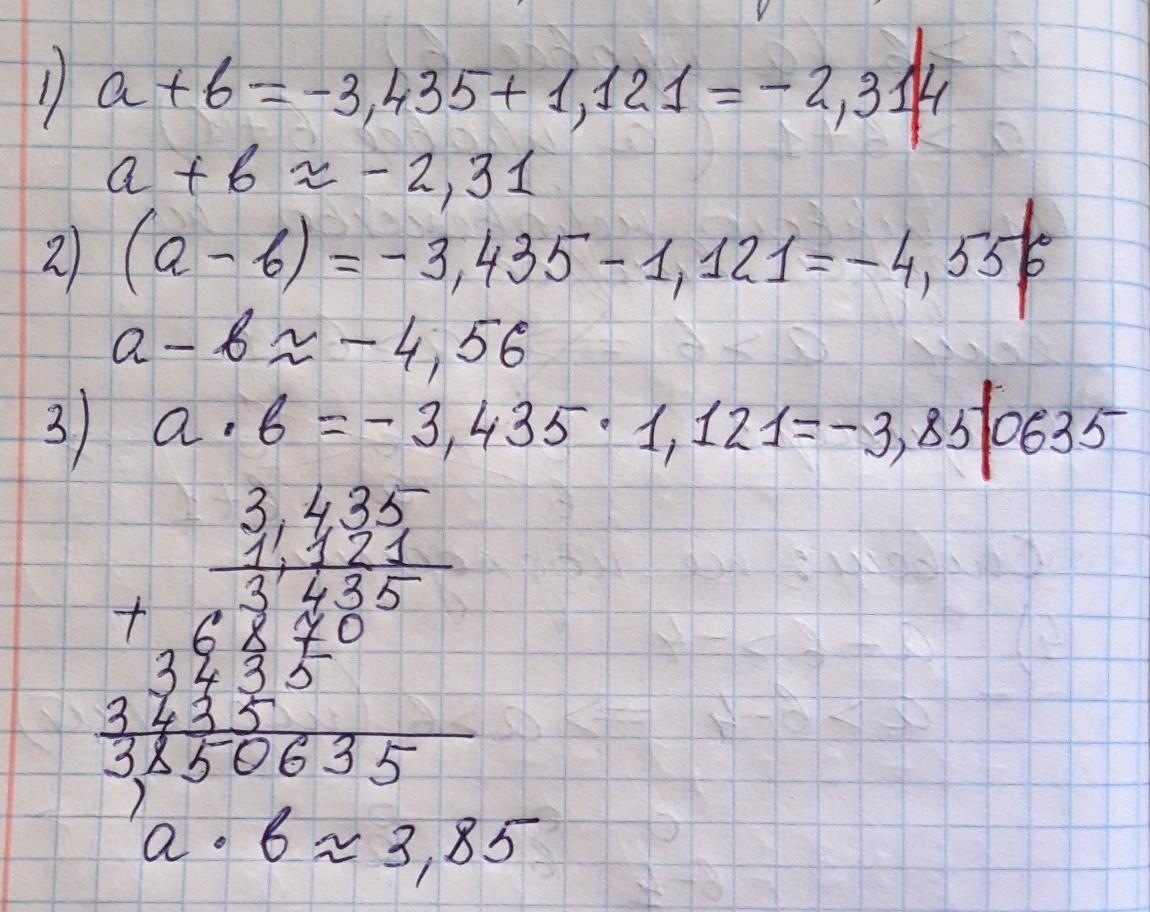 1) a + b = -3,435 + 1,121 = -2,314
a + b ≈ -2,31
2) (a - b) = -3,435 - 1,121 = -4,556
a - b ≈ -4,56
3) a · b = -3,435 · 1,121 = -3,850635
3,435
1,121
3 435
+ 6 8 70
3 4 3 5
3 4 3 5
3,850635
a · b ≈ 3,85